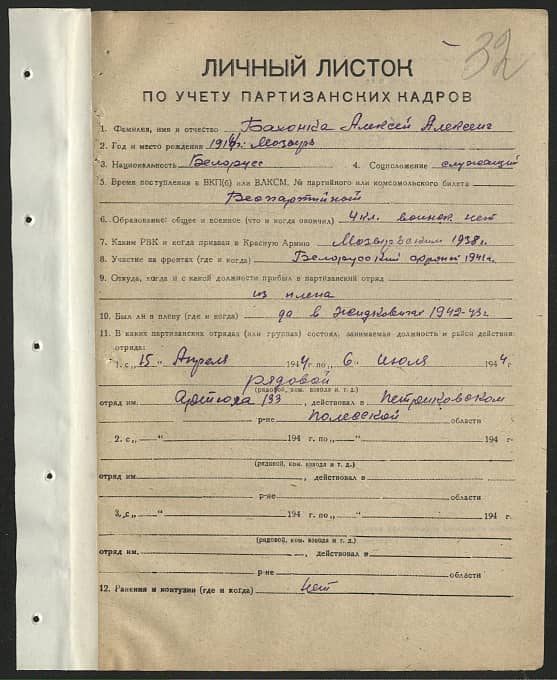 32
ЛИЧНЫЙ ЛИСТОК
ПО УЧЕТУ ПАРТИЗАНСКИХ КАДРОВ
1. Фамилия, имя и отчество Алексей
2. Год и место рождения г. Мозырь
3. Национальность Белорусс 4. Соцположение служащий
5. Время поступления в ВКП(б) или ВЛКСМ, № партийного или комсомольского билета
Беспартийный
6. Образование: общее и военное (что и когда окончил) 4 кл. военн. нет
7. Каким РВК и когда призван в Красную Армию Мозырьским 1938 г.
8. Участие на фронтах (где и когда) Белорусский фронт 1941 г.
9. Откуда, когда и с какой должности прибыл в партизанский отряд
из плена
10. Был ли в плену (где и когда) да в Житковичах 1942-43 г.
11. В каких партизанских отрядах (или группах) состоял, занимаемая должность и район действия
отряда:
1. с „15“ Апреля 1944 г. по „6“ Июля 1944 г.
рядовой
(рядовой, ком. взвода и т. д.)
отряд им. 133, действовал в Петриковском
р-не Полесской области
2. с „ “ 194 г. по „ “ 194 г.
(рядовой, ком. взвода и т. д.)
отряд им. , действовал в
р-не области
3. с „ “ 194 г. по „ “ 194 г.
(рядовой, ком. взвода и т. д.)
отряд им. , действовал в
р-не области
12. Ранения и контузии (где и когда) нет